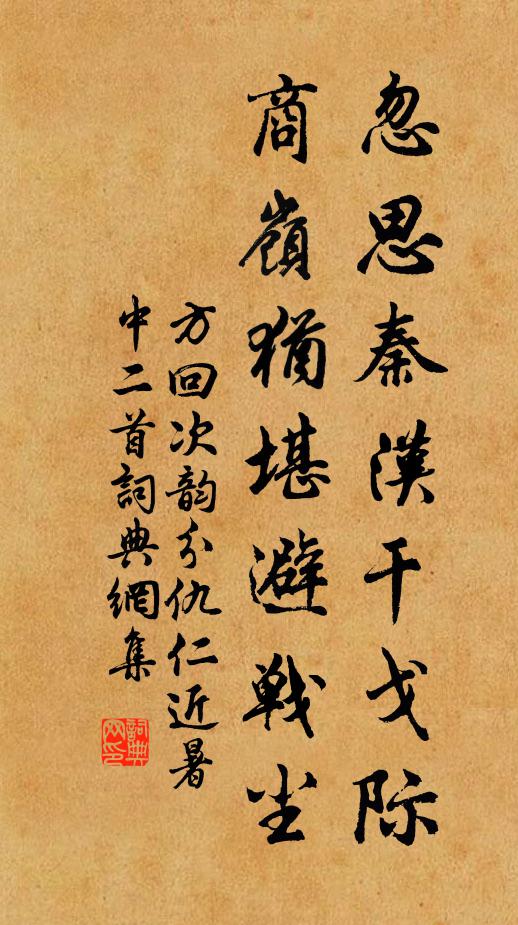 忽思秦漢干戈际
商嶺猶堪避戰尘
方回次韵分仇仁近暑
中二首詞典網集
詞典
网印